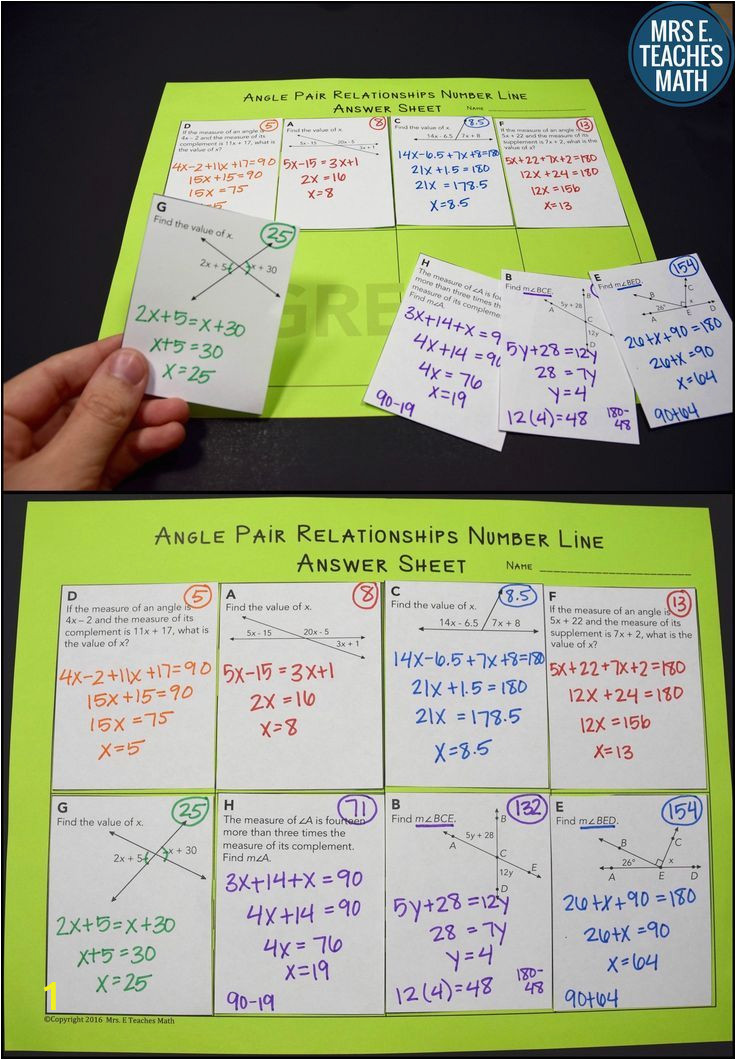 MRS E.
TEACHES
MATH
ANGLE PAIR RELATIONSHIPS NUMBER LINE
ANSWER SHEET NAME
D
5
If the measure of an angle is
4x – 2 and the measure of its
complement is 11x + 17, what is
the value of x?
4x-2+11x+17=90
15x+15=90
15x=75
A
8
Find the value of x.
5x - 15 20x - 5
3x + 1
5x-15=3x+1
2x=16
x=8
C
8.5
Find the value of x.
14x - 6.5 7x + 8
14x-6.5+7x+8=180
21x+1.5=180
21x=178.5
x=8.5
F
13
If the measure of an angle is
5x + 22 and the measure of its
supplement is 7x + 2, what is the
value of x?
5x+22+7x+2=180
12x+24=180
12x=156
x=13
G
25
Find the value of x.
2x + 5 x + 30
2x+5=x+30
x+5=30
x=25
GRE
H
The measure of ∠A is
more than three times the
measure of its complement.
Find m∠A.
3x+14+x=9
4x+14=90
4x=76
x=19
90-19
B
Find m∠BCE.
B
5y + 28
A
C
12y
D
5y+28=12y
28=7y
y=4
12(4)=48
180-
48
E
154
Find m∠BED.
B
C
26° x
A E D
26+x+90=180
26+x=90
x=64
90+64
ANGLE PAIR RELATIONSHIPS NUMBER LINE
ANSWER SHEET NAME
D
5
If the measure of an angle is
4x – 2 and the measure of its
complement is 11x + 17, what is
the value of x?
4x-2+11x+17=90
15x+15=90
15x=75
x=5
A
8
Find the value of x.
5x - 15 20x - 5
3x + 1
5x-15=3x+1
2x=16
x=8
C
8.5
Find the value of x.
14x - 6.5 7x + 8
14x-6.5+7x+8=180
21x+1.5=180
21x=178.5
x=8.5
F
13
If the measure of an angle is
5x + 22 and the measure of its
supplement is 7x + 2, what is the
value of x?
5x+22+7x+2=180
12x+24=180
12x=156
x=13
G
25
Find the value of x.
2x + 5 x + 30
2x+5=x+30
x+5=30
x=25
H
71
The measure of ∠A is fourteen
more than three times the
measure of its complement.
Find m∠A.
3x+14+x=90
4x+14=90
4x=76
x=19
90-19
B
132
Find m∠BCE.
B
5y + 28
A
C
12y E
D
5y+28=12y
28=7y
y=4
12(4)=48
180-
48
E
154
Find m∠BED.
B
C
26° x
A E D
26+x+90=180
26+x=90
x=64
90+64
1
©Copyright 2016 Mrs. E Teaches Math